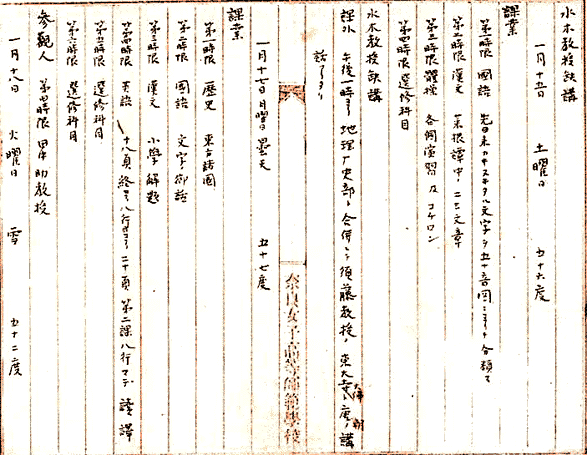 水木教授缺講
一月十五日 土曜日 五十六度
課業
第一時限 國語 先日來ノ カキヌキタル文字ヲ五十音図ニヨリテ分類ス
第二時限 漢文 菜根譚中ノ二三文章
第三時限 體操 各個演習 及 コチロン
第四時限 選修科目
水木教授缺講
課外 午後一時ヨリ地理歴史部ト合併シテ須藤教授ノ東大寺 大佛 ノ講
話アリタリ
一月十七日 月曜日 曇天 五十七度
奈良女子高等師範學校
課業
第一時限 歴史 東方諸国
第二時限 國語 文字御話
第三時限 漢文 小學 解題
第四時限 英語 十八頁終ヨリ八行 二十頁 第二課八行マデ 譯
第五時限 選修科目
第六時限 選修科目
參觀人 第四時限 教授
一月十八日 火曜日 雪 五十二度